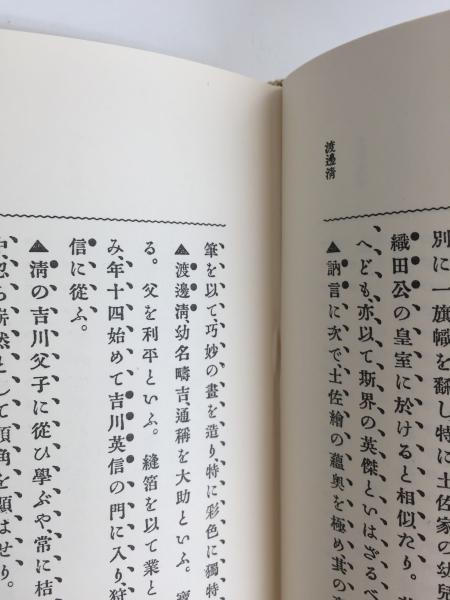 渡邊清
別に一旗幟を翻し特に土佐家の幼
織田公の皇室に於けると相似たり。
へども、亦以て斯界の英傑といはざるべ
▲訥言に次で、土佐繪の蘊奥を極め、其の
筆を以て、巧妙の畫を造り、特に彩色に獨特
▲渡邊清、幼名疇吉、通稱を大助といふ。
る。父を利平といふ。縫箔を以て業と
み、年十四始めて吉川英信の門に入り、狩
信に從ふ。
▲清の吉川父子に從ひ學ぶや、常に桔
忽ち嶄然として頭角を顯はせり。